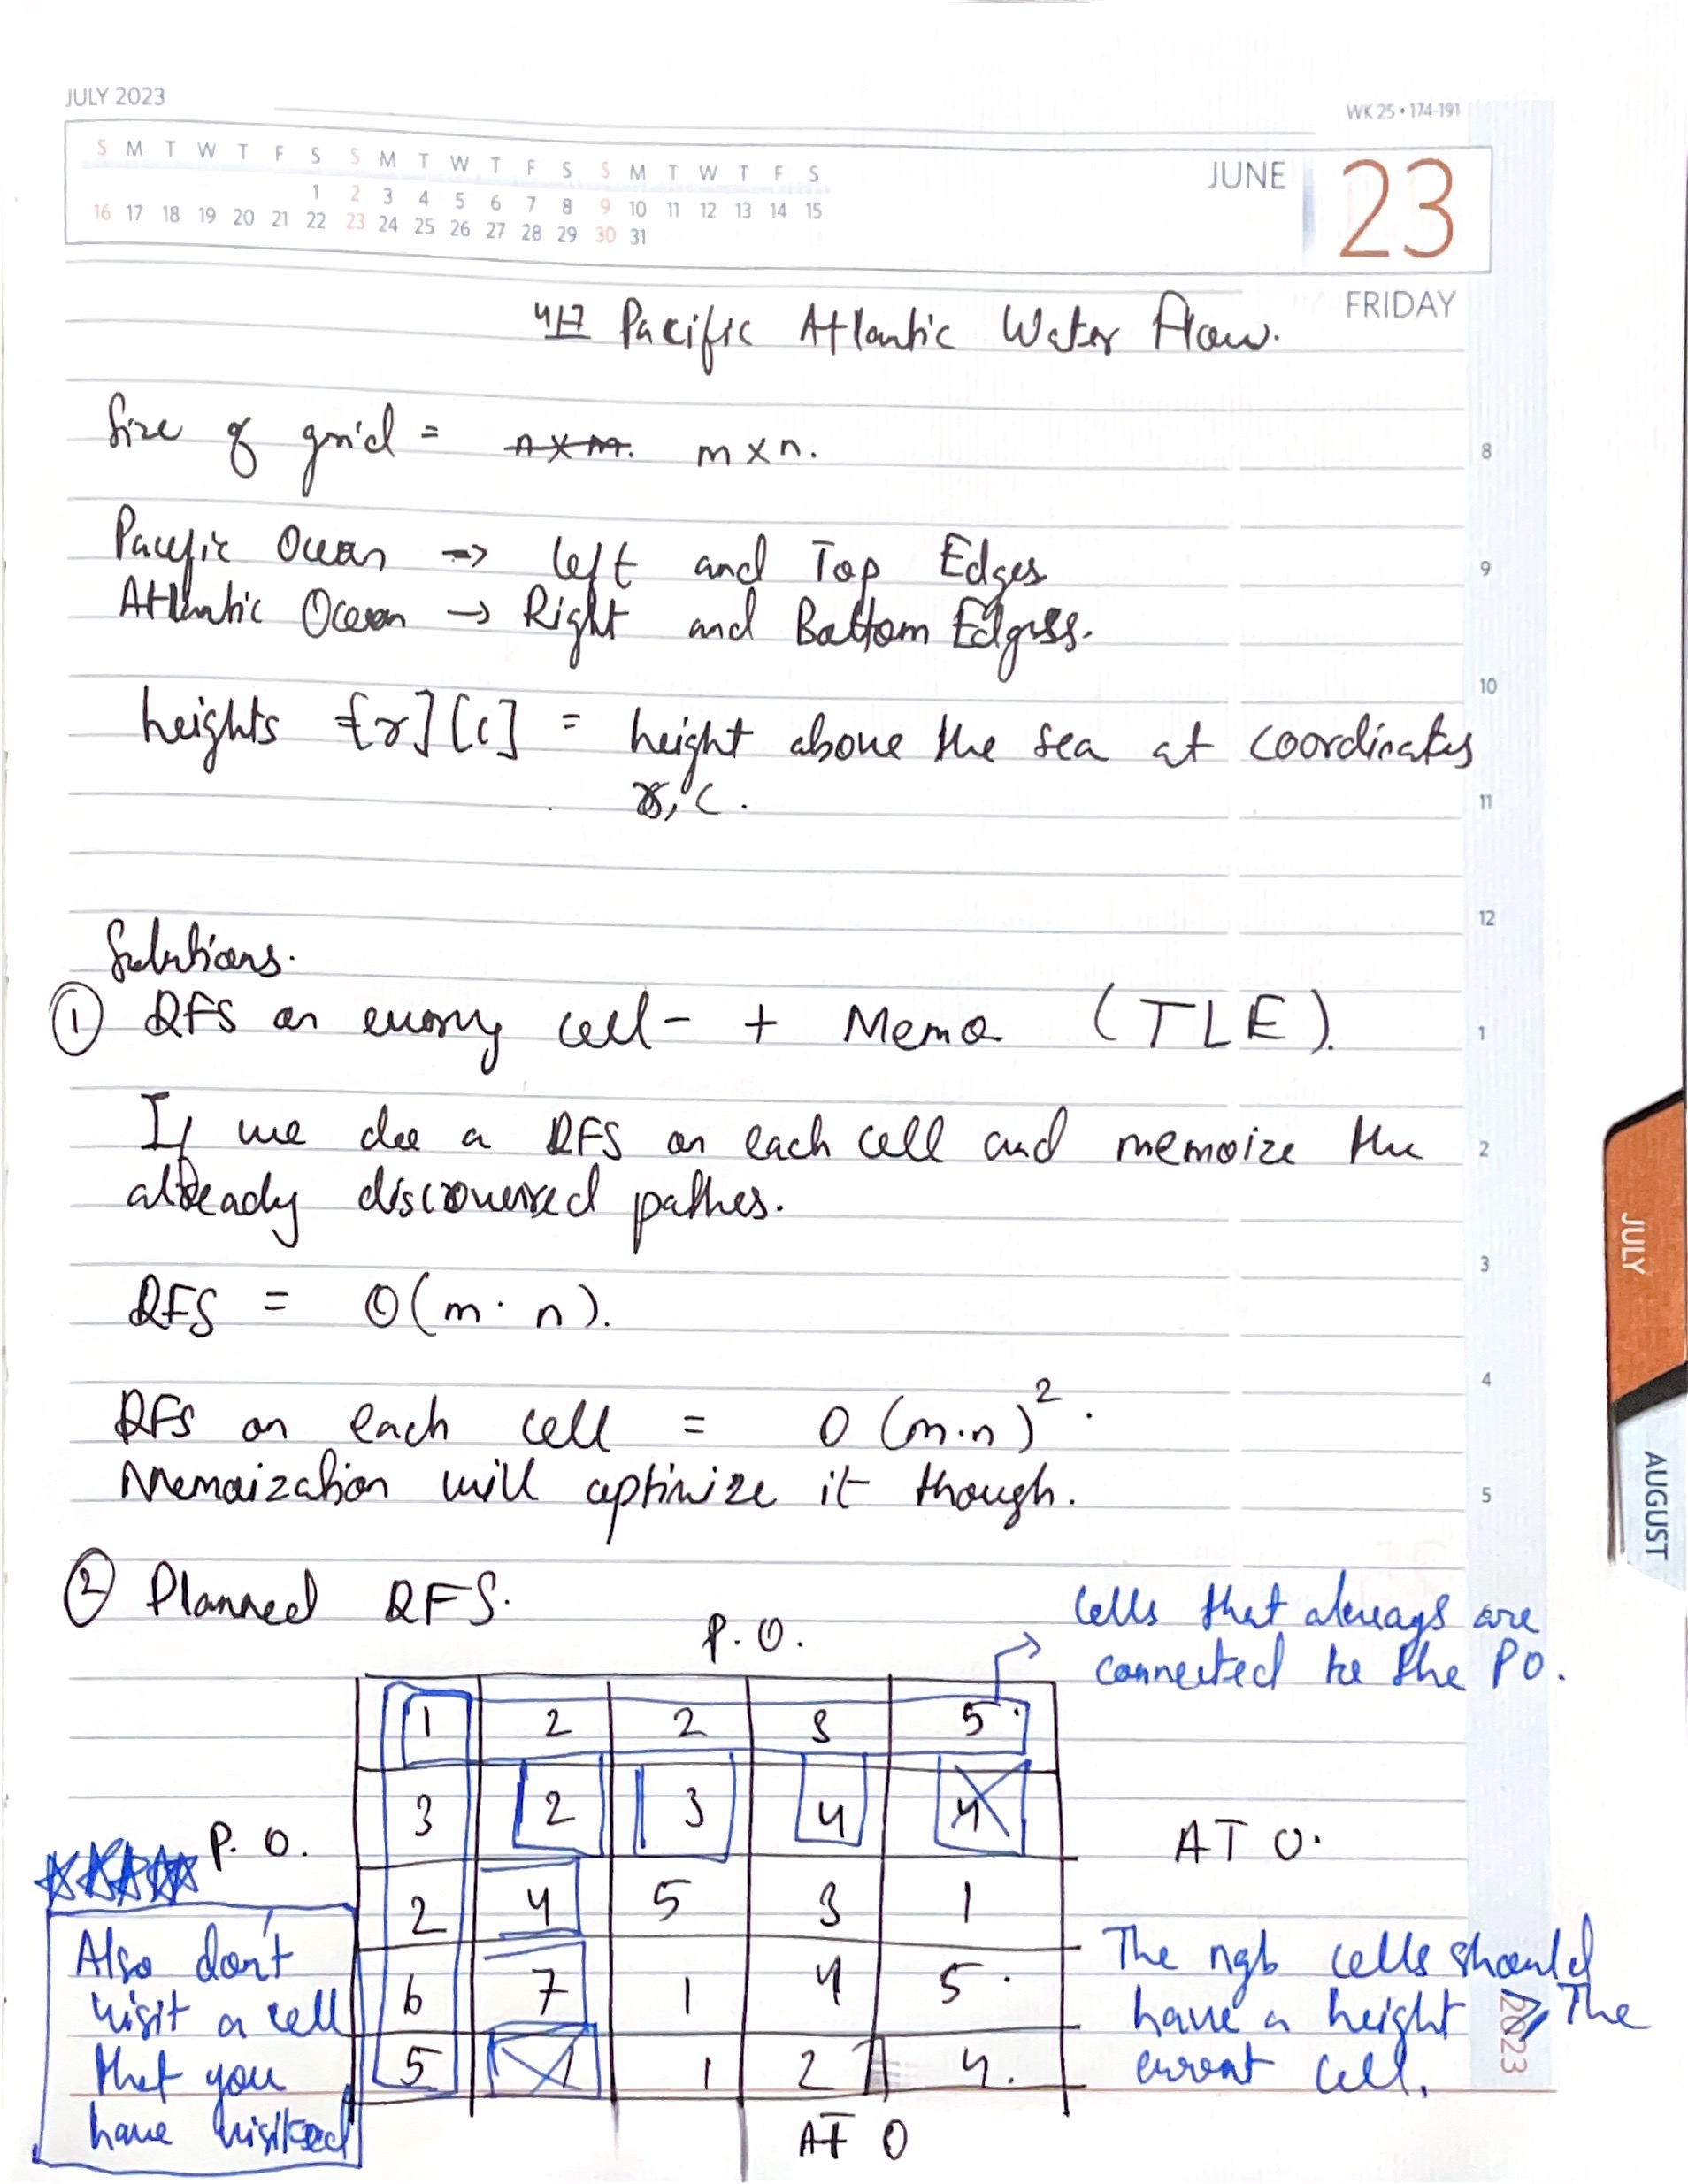 JULY 2023
WK 25 • 174-191
S M T W T F S S M T W T F S S M T W T F S
1 2 3 4 5 6 7 8 9 10 11 12 13 14 15
16 17 18 19 20 21 22 23 24 25 26 27 28 29 30 31
JUNE 23
FRIDAY
417 Pacific Atlantic Water Flow.
Size of grid = n x m. m x n.
8
Pacific Ocean → left and Top Edges
9
Atlantic Ocean → Right and Bottom Edgess.
10
heights [r][c] = height above the sea at coordinates
r, c.
11
12
Solutions.
① DFS on every cell - + Memo (TLE).
1
If we do a DFS on each cell and memoize the
2
already discovered pathes.
3
DFS = O(m · n).
4
DFS on each cell = O (m.n)².
Memoization will optimize it though.
5
② Planned DFS.
cells that always are
connected to the PO.
P. O.
1 2 2 3 5
3 2 3 4 4
P. O.
AT O.
2 4 5 3 1
6 7 1 4 5
5 1 1 2 4
AT O
Also don't
visit a cell
that you
have visited
The ngb cells should
have a height ≥ The
current cell.
2023
JULY
AUGUST